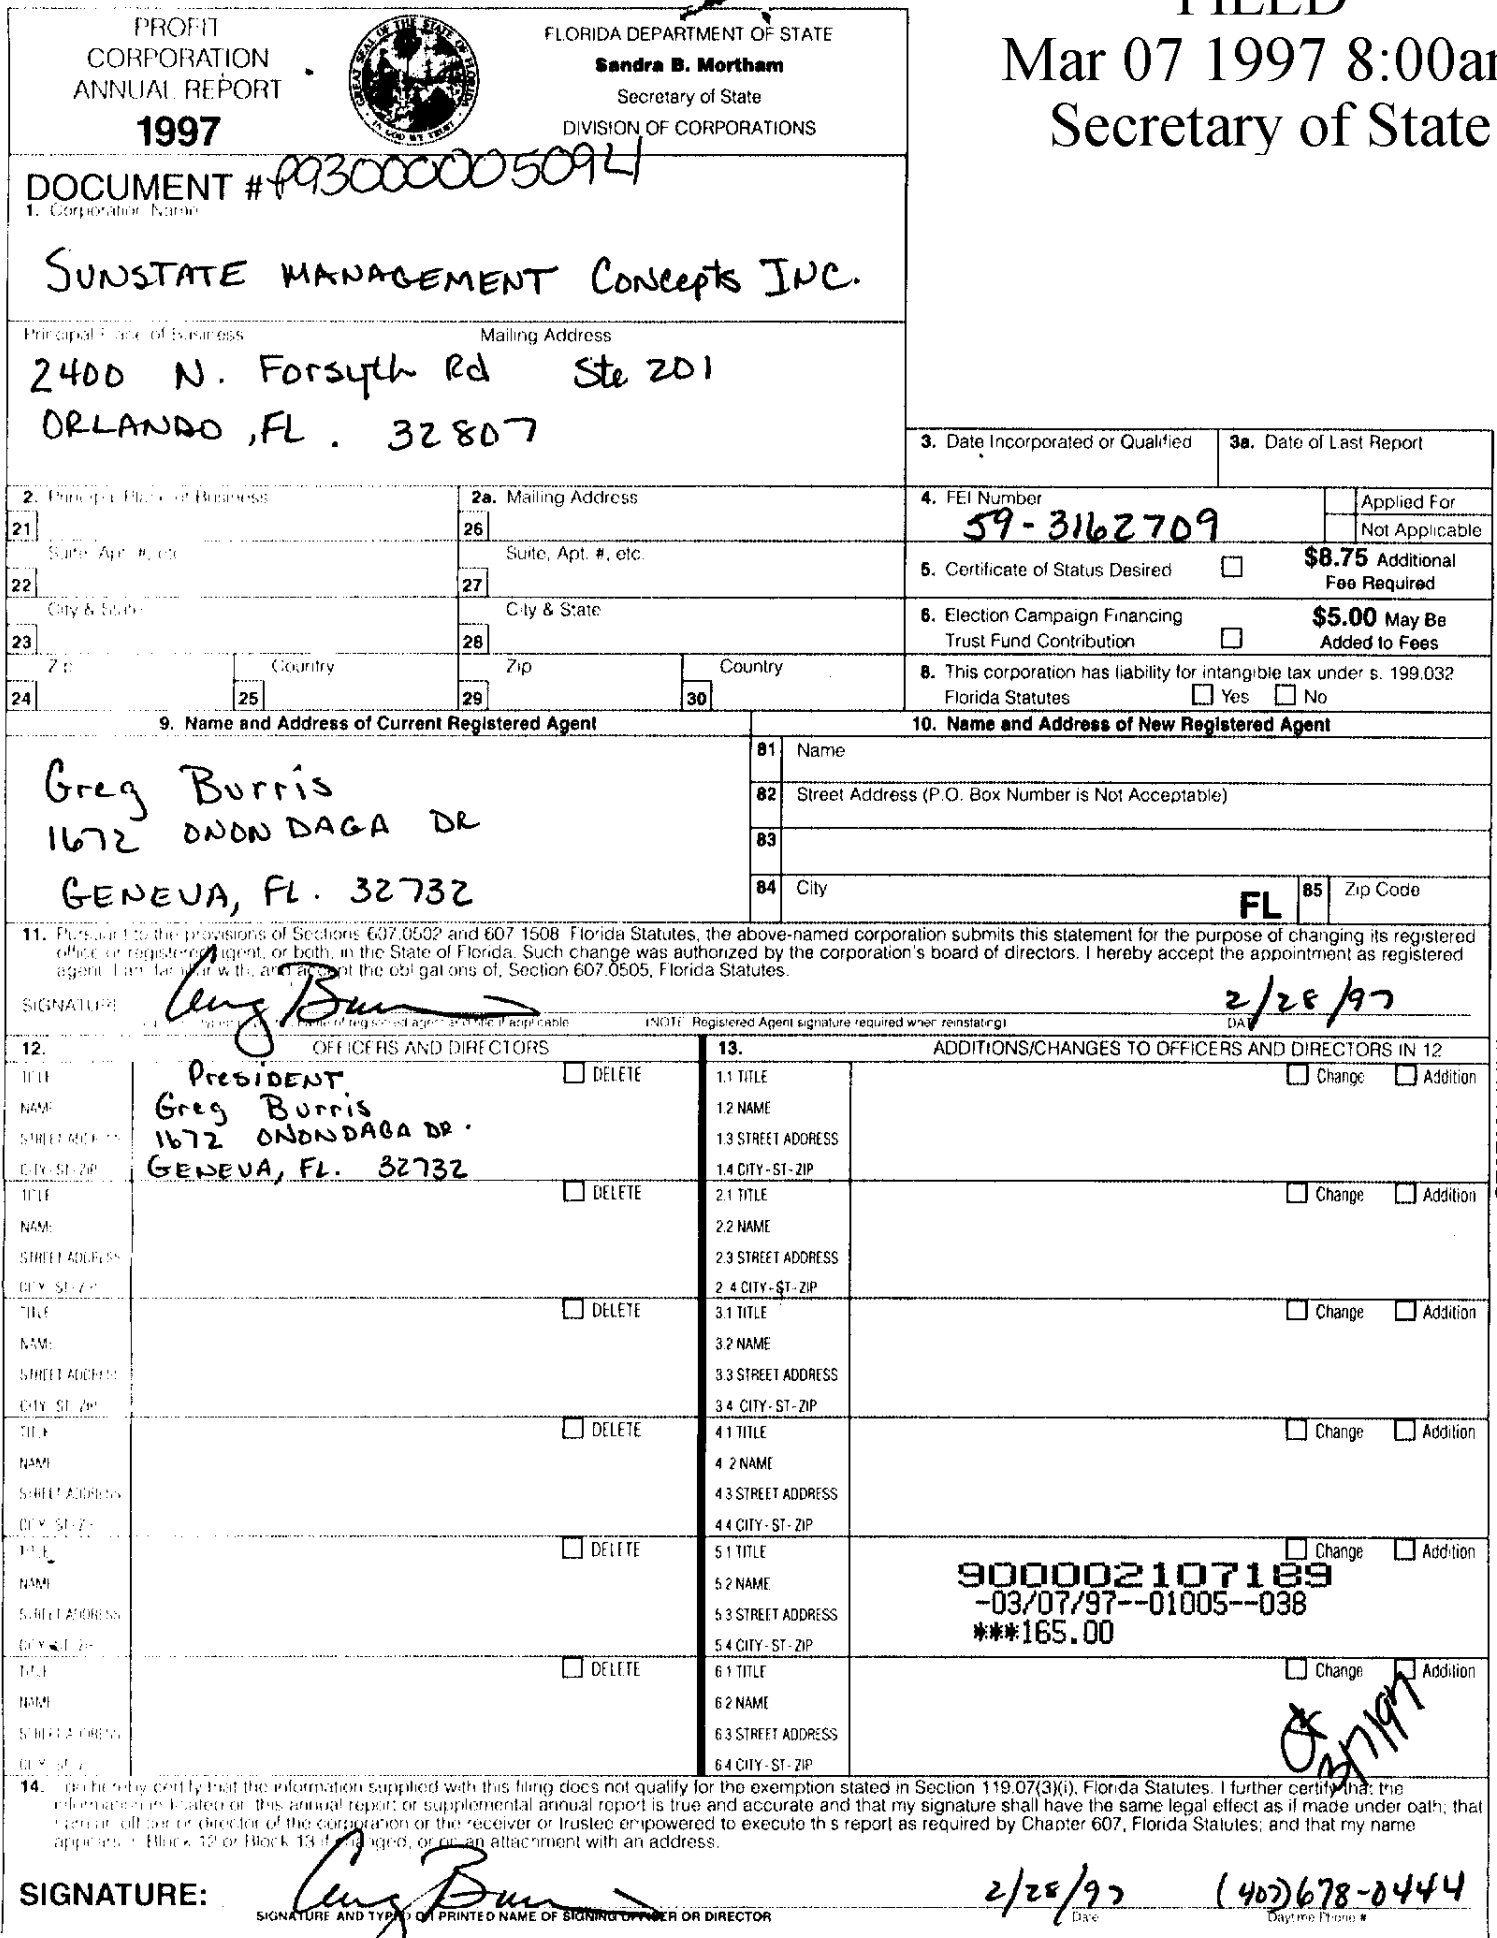 PROFIT
CORPORATION
ANNUAL REPORT
1997
GREAT SEAL OF THE STATE OF FLORIDA
IN GOD WE TRUST
FLORIDA DEPARTMENT OF STATE
Sandra B. Mortham
Secretary of State
DIVISION OF CORPORATIONS
FILED
Mar 07 1997 8:00am
Secretary of State
DOCUMENT # P93000005094
1. Corporation Name
SUNSTATE MANAGEMENT Concepts INC.
Principal Place of Business Mailing Address
2400 N. Forsyth Rd Ste 201
ORLANDO, FL. 32807
3. Date Incorporated or Qualified 3a. Date of Last Report
2. Principal Place of Business 2a. Mailing Address
21 26
Suite, Apt. #, etc. Suite, Apt. #, etc.
22 27
City & State City & State
23 28
Zip Country Zip Country
24 25 29 30
4. FEI Number Applied For
59-3162709 Not Applicable
5. Certificate of Status Desired $8.75 Additional
Fee Required
6. Election Campaign Financing $5.00 May Be
Trust Fund Contribution Added to Fees
8. This corporation has liability for intangible tax under s. 199.032
Florida Statutes Yes No
9. Name and Address of Current Registered Agent
Greg Burris
1672 ONONDAGA DR
GENEVA, FL. 32732
10. Name and Address of New Registered Agent
81 Name
82 Street Address (P.O. Box Number is Not Acceptable)
83
84 City FL 85 Zip Code
11. Pursuant to the provisions of Sections 607.0502 and 607.1508 Florida Statutes, the above-named corporation submits this statement for the purpose of changing its registered
office or registered agent, or both, in the State of Florida. Such change was authorized by the corporation's board of directors. I hereby accept the appointment as registered
agent. I am familiar with, and accept the obligations of, Section 607.0505, Florida Statutes.
SIGNATURE Greg Burris 2/28/97
name of registered agent and title if applicable (NOTE: Registered Agent signature required when reinstating) DATE
12. OFFICERS AND DIRECTORS
TITLE PRESIDENT DELETE
NAME Greg Burris
STREET ADDRESS 1672 ONONDAGA DR.
CITY-ST-ZIP GENEVA, FL. 32732
TITLE DELETE
NAME
STREET ADDRESS
CITY-ST-ZIP
TITLE DELETE
NAME
STREET ADDRESS
CITY-ST-ZIP
TITLE DELETE
NAME
STREET ADDRESS
CITY-ST-ZIP
TITLE DELETE
NAME
STREET ADDRESS
CITY-ST-ZIP
TITLE DELETE
NAME
STREET ADDRESS
CITY-ST-ZIP
13. ADDITIONS/CHANGES TO OFFICERS AND DIRECTORS IN 12
1.1 TITLE Change Addition
1.2 NAME
1.3 STREET ADDRESS
1.4 CITY-ST-ZIP
2.1 TITLE Change Addition
2.2 NAME
2.3 STREET ADDRESS
2.4 CITY-ST-ZIP
3.1 TITLE Change Addition
3.2 NAME
3.3 STREET ADDRESS
3.4 CITY-ST-ZIP
4.1 TITLE Change Addition
4.2 NAME
4.3 STREET ADDRESS
4.4 CITY-ST-ZIP
5.1 TITLE Change Addition
5.2 NAME 900002107189
5.3 STREET ADDRESS -03/07/97--01005--038
5.4 CITY-ST-ZIP ***165.00
6.1 TITLE Change Addition
6.2 NAME
6.3 STREET ADDRESS
6.4 CITY-ST-ZIP
3/7/97
14. I do hereby certify that the information supplied with this filing does not qualify for the exemption stated in Section 119.07(3)(i), Florida Statutes. I further certify that the
information indicated on this annual report or supplemental annual report is true and accurate and that my signature shall have the same legal effect as if made under oath; that
I am an officer or director of the corporation or the receiver or trustee empowered to execute this report as required by Chapter 607, Florida Statutes; and that my name
appears in Block 12 or Block 13 if changed, or on an attachment with an address.
SIGNATURE: Greg Burris 2/28/97 (407)678-0444
SIGNATURE AND TYPED OR PRINTED NAME OF SIGNING OFFICER OR DIRECTOR Date Daytime Phone #